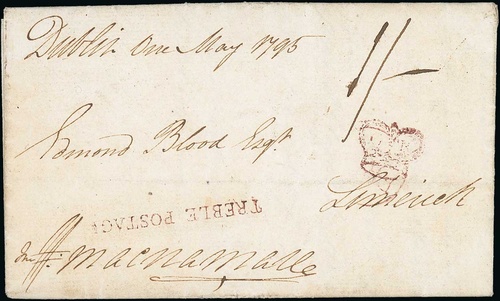 Dublin One May 1795
1/-
Edmond Blood Esqr
Limerick
TREBLE POSTAGE
Macnamara